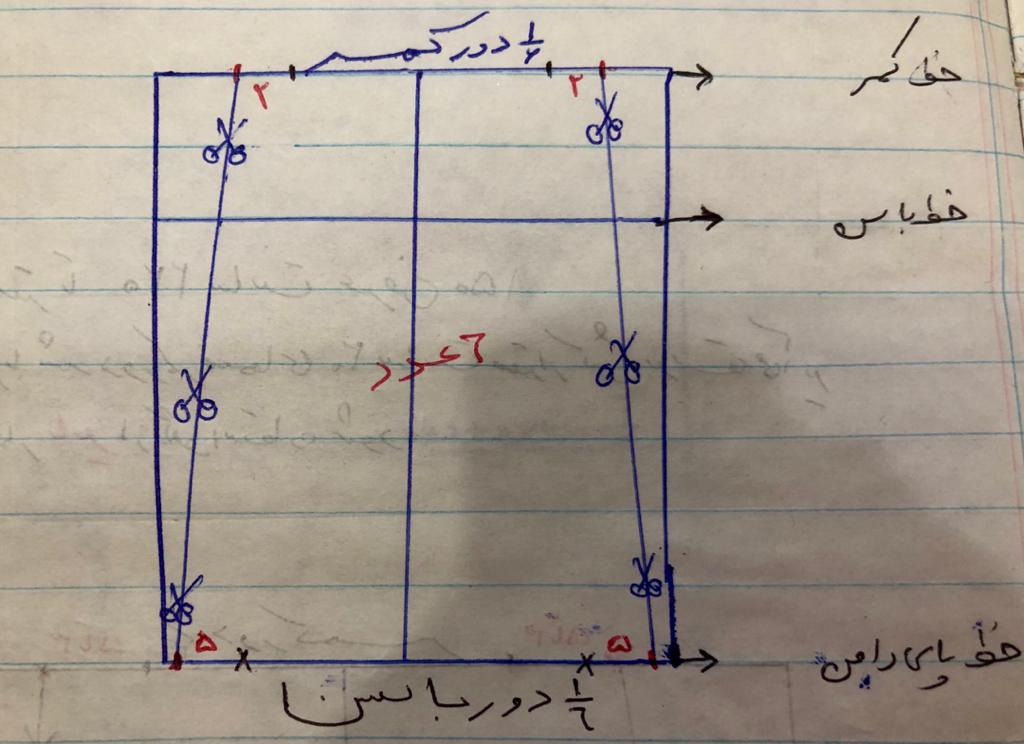 ۱/۶ دور کمر
خط کمر
۲ ۲
خط باسن
۶ عدد
۵ ۵
خط پای دامن
۱/۶ دور باسن